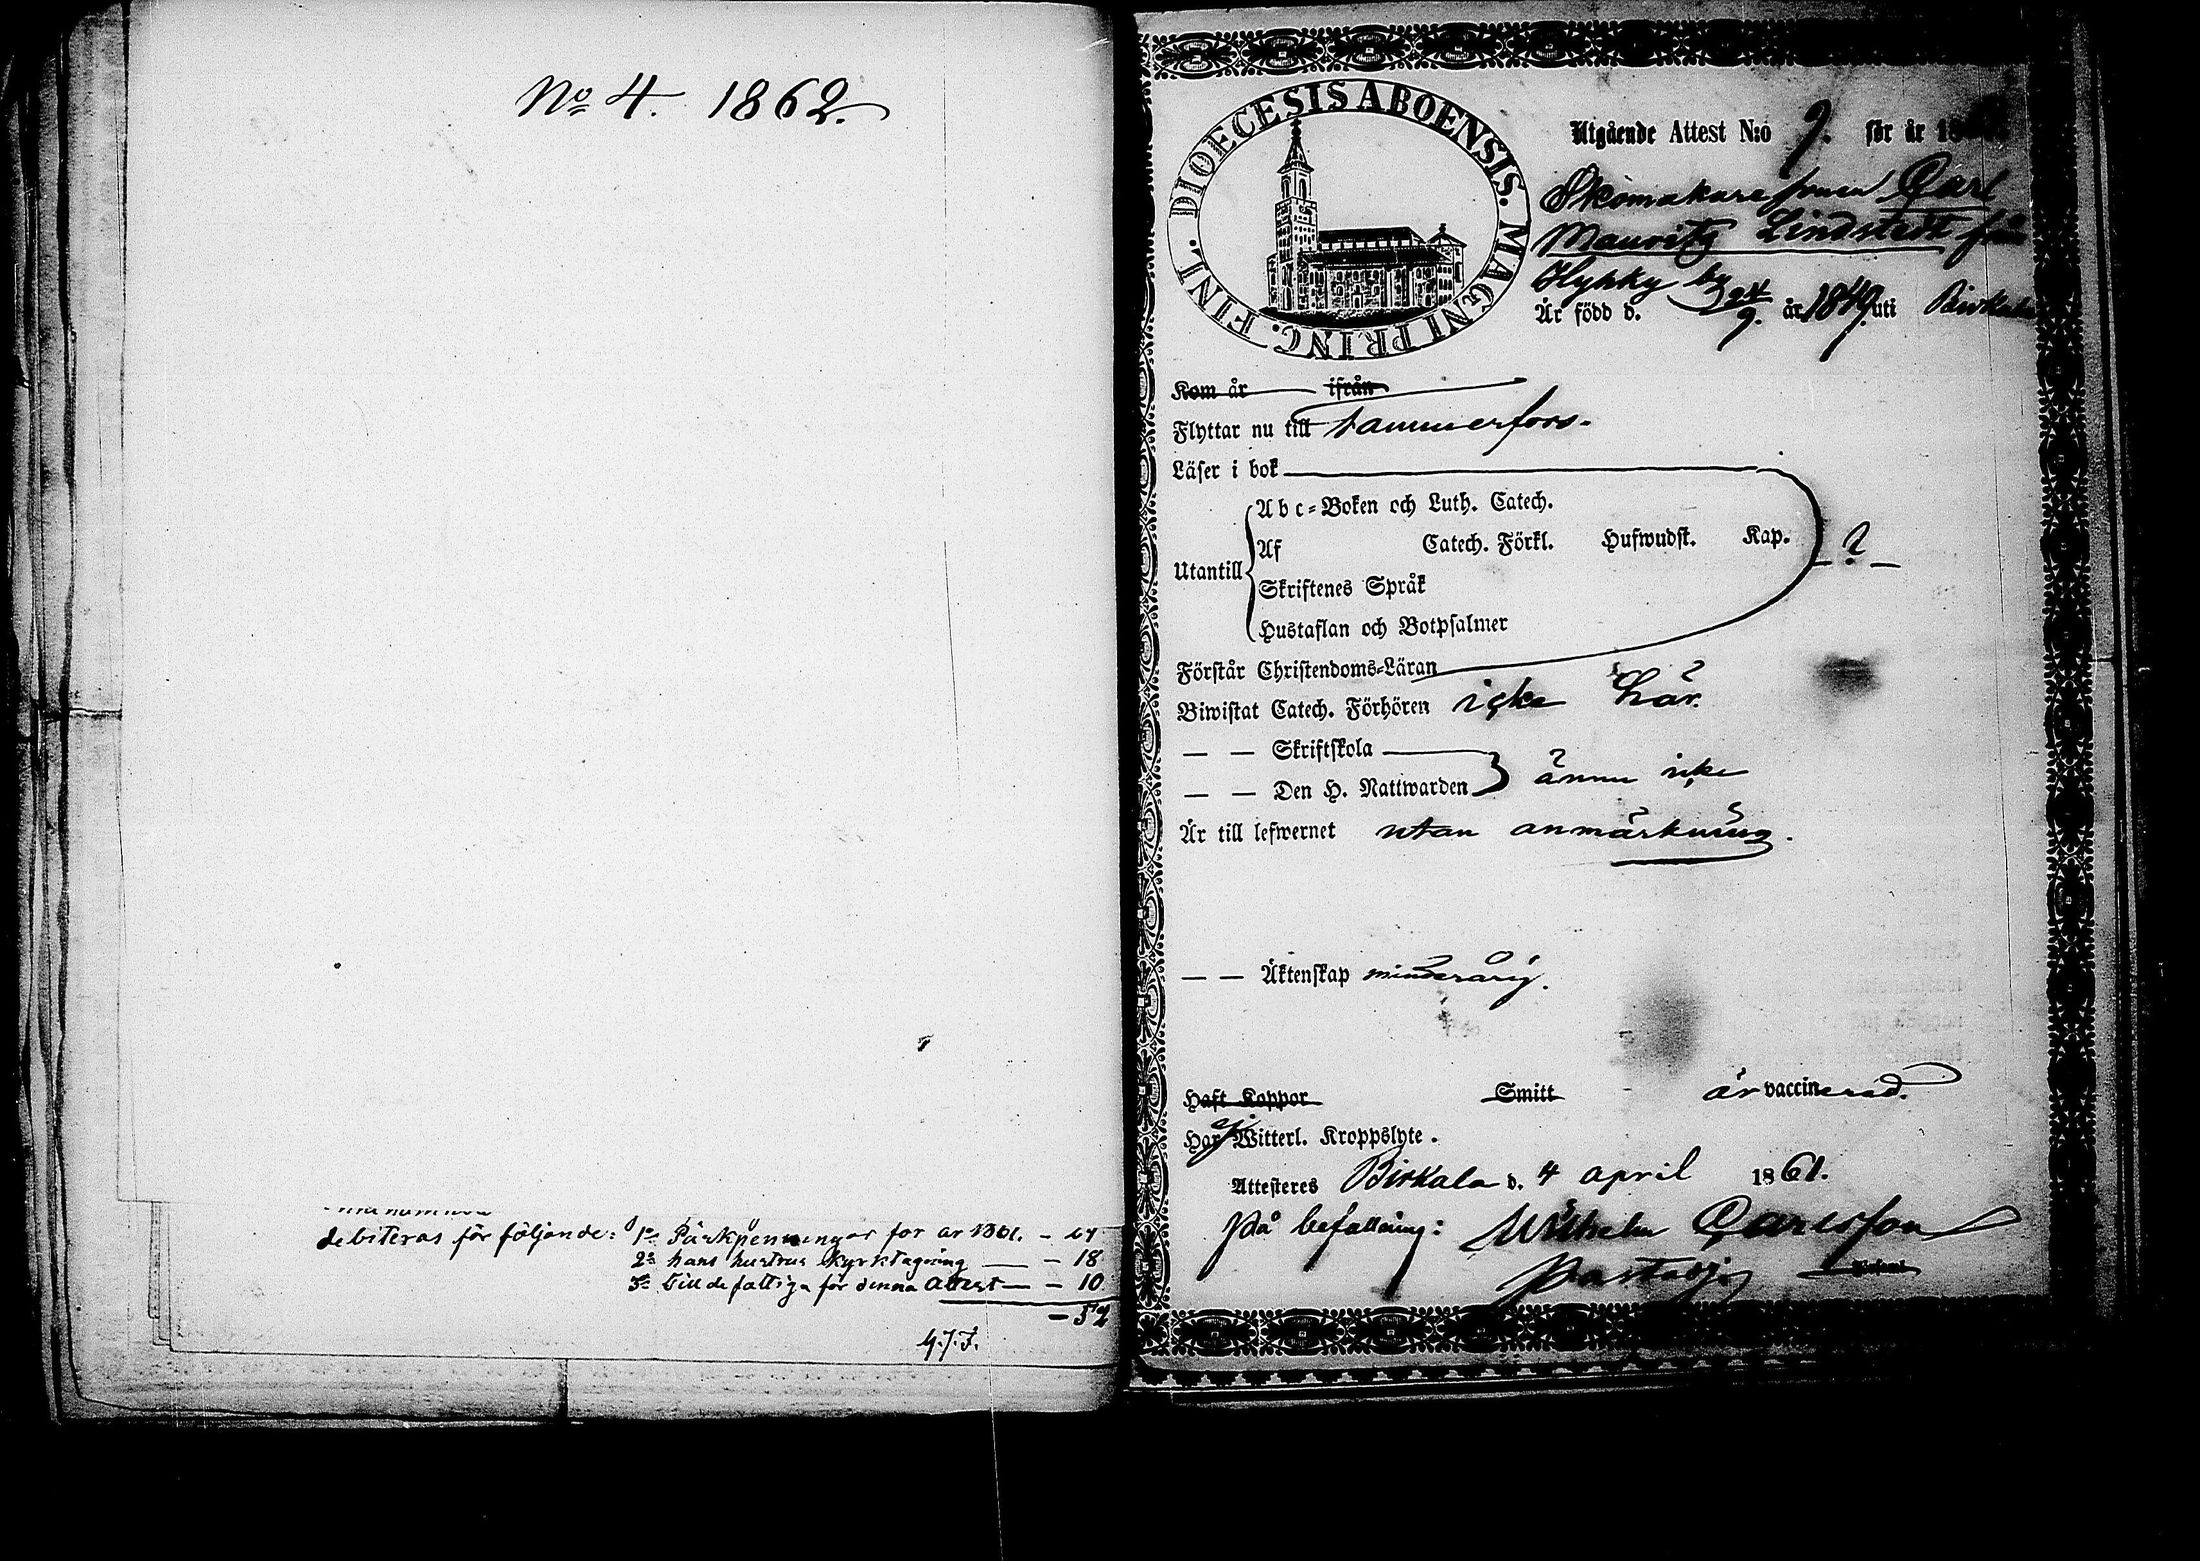 No 4. 1862.
debiteras för följande: 1o Párkpenningar for ar 1861. -
2o hans hustrus kyrktagning — - 18
3o till de fattiga för denna Attest — - 10
DIOECESIS ABOENSIS. MAGNI PRINC. FINL.
Utgående Attest N:o 9. för år 18
Skomakaresonen Carl
Mauritz Lindstedt från
Hyhky by
Är född d. 24/9. år 1849. uti Birkala
Kom år ifrån
Flyttar nu till Tammerfors.
Läser i bok
Utantill
A b c = Boken och Luth. Catech.
Af Catech. Förkl. Hufwudst. Kap. - ? -
Skriftenes Språk
Hustaflan och Botpsalmer
Förstår Christendoms-Läran
Biwistat Catech. Förhören icke här.
— — Skriftskola
— — Den H. Nattwarden ännu icke
Är till lefwernet utan anmärkning.
— — Äktenskap minderårig.
Haft Koppor Smitt är vaccinerad.
Har ej Witterl. Kroppslyte.
Attesteres Birkala d. 4 april 1861.
På befallning: Wilhelm Carlsson
Past. adj.